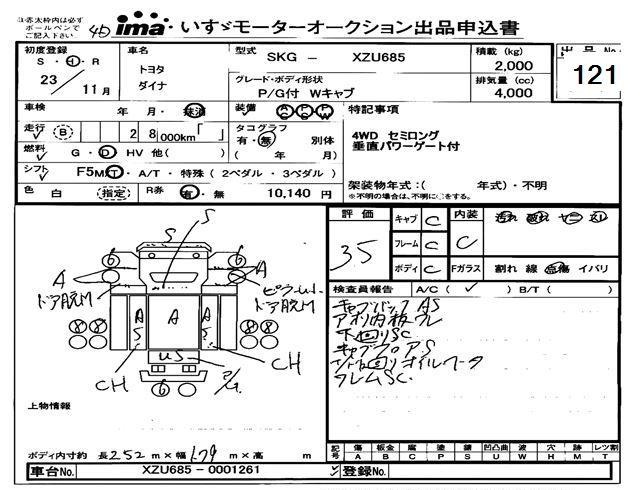 ※赤太枠内は必ず
ボールペンで
ご記入下さい
4D ima いすゞモーターオークション出品申込書
初度登録 S・H・R 23 11月
車名 トヨタ ダイナ
型式 SKG - XZU685
グレード・ボディ形状 P/G付 Wキャブ
積載 (kg) 2,000
排気量 (cc) 4,000
出品 No. 121
車検 年 月・抹消
装備 AC PS PW
特記事項
走行 B 28000km
タコグラフ 有・無 別体 ( 年 月)
4WD セミロング
垂直パワーゲート付
燃料 G・D HV 他( )
シフト F5MT・A/T・特殊(2ペダル・3ペダル)
架装物年式:( 年式)・不明
※不明の場合は、不明に○をする。
色 白 指定 R券 有・無 10,140 円
評価 35
キャブ C
フレーム C
ボディ C
内装 C
汚れ 破れ ヤニ スリ
Fガラス 割れ 線 点傷 イバリ
S
S
6 6
A A
ドア廻M ピラーU、ドア廻M
A A A
S S
8 8 8 8
CH US CH
6
検査員報告 A/C(✓) B/T( )
キャブバック AS
アオリ内板ワレ
下回りSC
キャブフロアS
フレムSC.
上物情報
ボディ内寸約 長252 m×幅179 m×高 m
記号 傷 A 板金 B 腐 C 塗 P 錆 S 凹凸曲 U 波 W 穴 H 跡 M レツ割 T
車台No. XZU685-0001261 登録No.